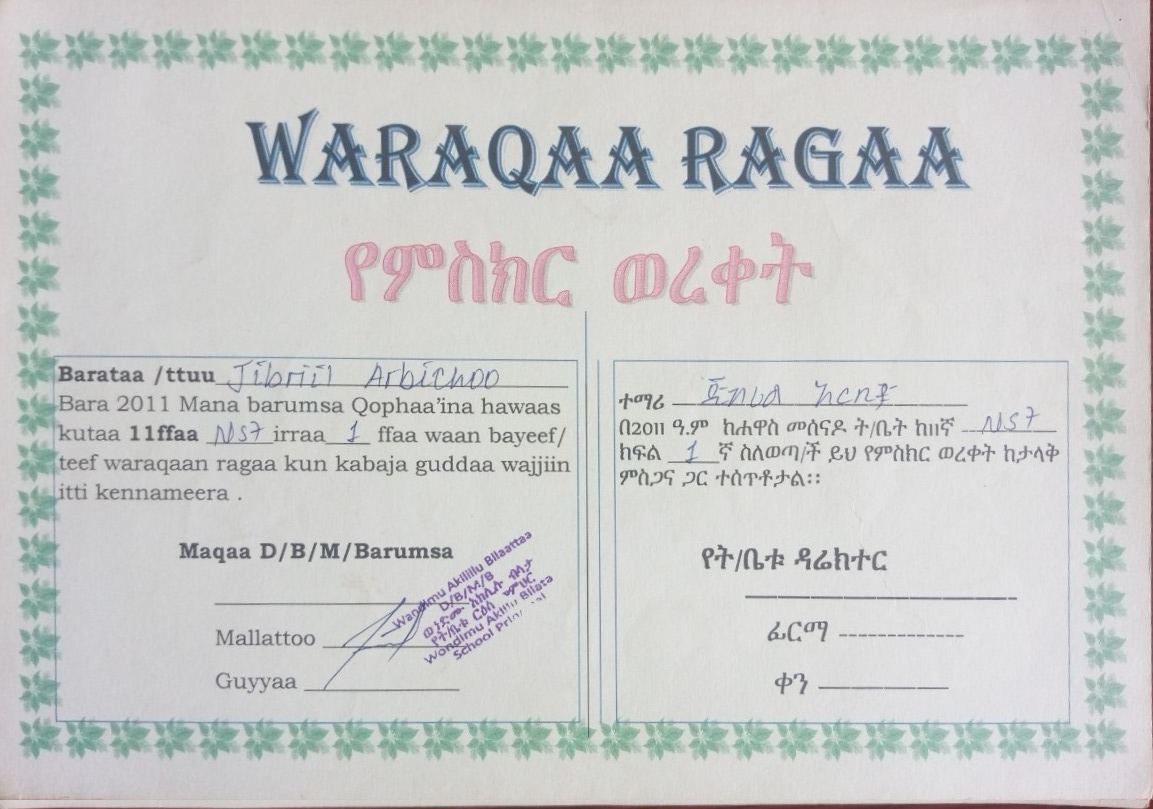 WARAQAA RAGAA
የምስክር ወረቀት
Barataa /ttuu Jibriil Arbichoo
Bara 2011 Mana barumsa Qophaa’ina hawaas
kutaa 11ffaa NS7 irraa 1 ffaa waan bayeef/
teef waraqaan ragaa kun kabaja guddaa wajjiin
itti kennameera .
Maqaa D/B/M/Barumsa
Mallattoo
Guyyaa
Wandimu Akilillu Bilaattaa
D/B/M/B
ወንድሙ አክሊሉ ብላታ
የት/ቤቱ ርዕሰ መምህር
Wondimu Akilu Bilata
School
ተማሪ ጂብሪል አርቢቾ
በ2011 ዓ.ም ከሐዋስ መሰናዶ ት/ቤት ከ11ኛ NS7
ክፍል 1 ኛ ስለወጣ/ች ይህ የምስክር ወረቀት ከታላቅ
ምስጋና ጋር ተሰጥቶታል፡፡
የት/ቤቱ ዳሬክተር
ፊርማ
ቀን